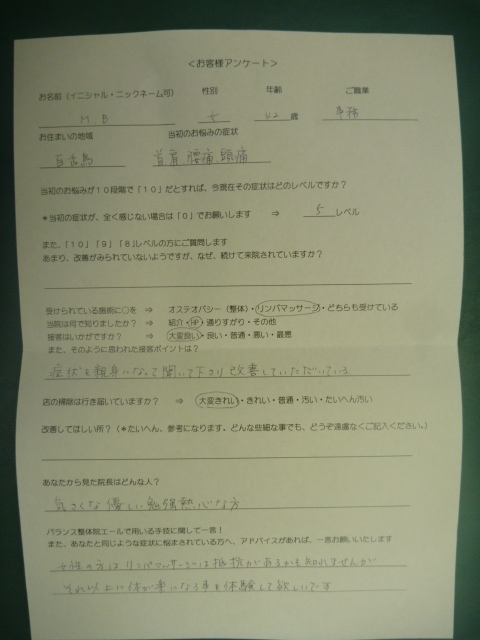 <お客様アンケート>
お名前(イニシャル・ニックネーム可) 性別 年齢 ご職業
M B 女 42 歳 事務
お住まいの地域 当初のお悩みの症状
百舌鳥 首肩 腰痛 頭痛
当初のお悩みが10段階で「10」だとすれば、今現在その症状はどのレベルですか?
*当初の症状が、全く感じない場合は「0」でお願いします ⇒ 5 レベル
また、「10」「9」「8」レベルの方にご質問します
あまり、改善がみられていないようですが、なぜ、続けて来院されていますか?
受けられている施術に○を ⇒ オステオパシー(整体)・リンパマッサージ・どちらも受けている
当院は何で知りましたか? ⇒ 紹介・HP・通りすがり・その他
接客はいかがですか? ⇒ 大変良い・良い・普通・悪い・最悪
また、そのように思われた接客ポイントは?
症状を親身になって聞いて下さり改善していただいている
店の掃除は行き届いていますか? ⇒ 大変きれい・きれい・普通・汚い・たいへん汚い
改善してほしい所?(*たいへん、参考になります。どんな些細な事でも、どうぞ遠慮なくご記入ください。)
あなたから見た院長はどんな人?
気さくな優しい勉強熱心な方
バランス整体院エールで用いる手技に関して一言!
また、あなたと同じような症状に悩まされている方へ、アドバイスがあれば、一言お願いいたします
女性の方はリンパマッサージは抵抗があるかも知れませんが
それ以上に体が楽になる事を体験して欲しいです